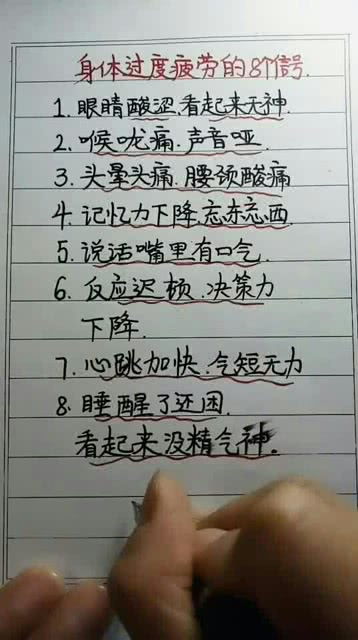 身体过度疲劳的8个信号.
1. 眼睛酸涩.看起来无神
2. 喉咙痛.声音哑.
3. 头晕头痛.腰颈酸痛
4. 记忆力下降.忘东忘西.
5. 说话嘴里有口气.
6. 反应迟顿.决策力
下降.
7. 心跳加快.气短无力
8. 睡醒了还困.
看起来没精气神.